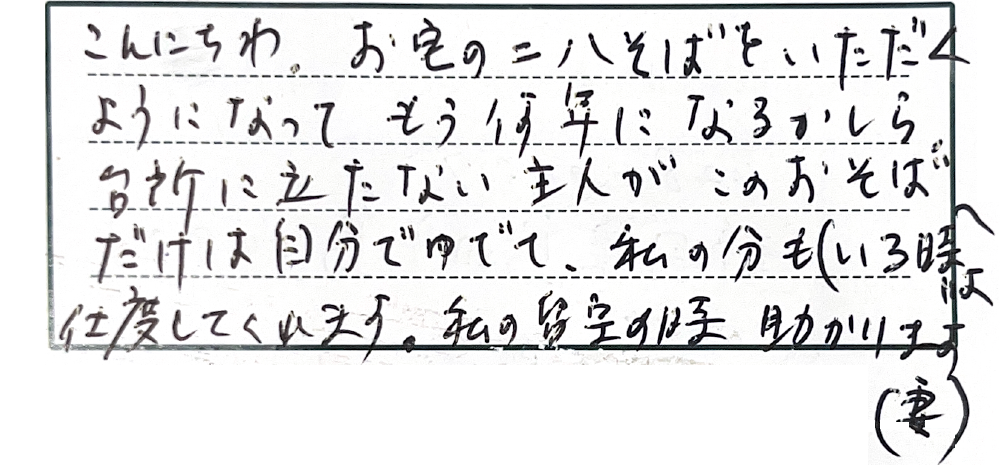 こんにちわ。お宅の二八そばをいただく
ようになってもう何年になるかしら
台所に立たない主人がこのおそば
だけは自分でゆでて、私の分も(いる時は)
仕度してくれます。私の留守の時助かります
(妻)